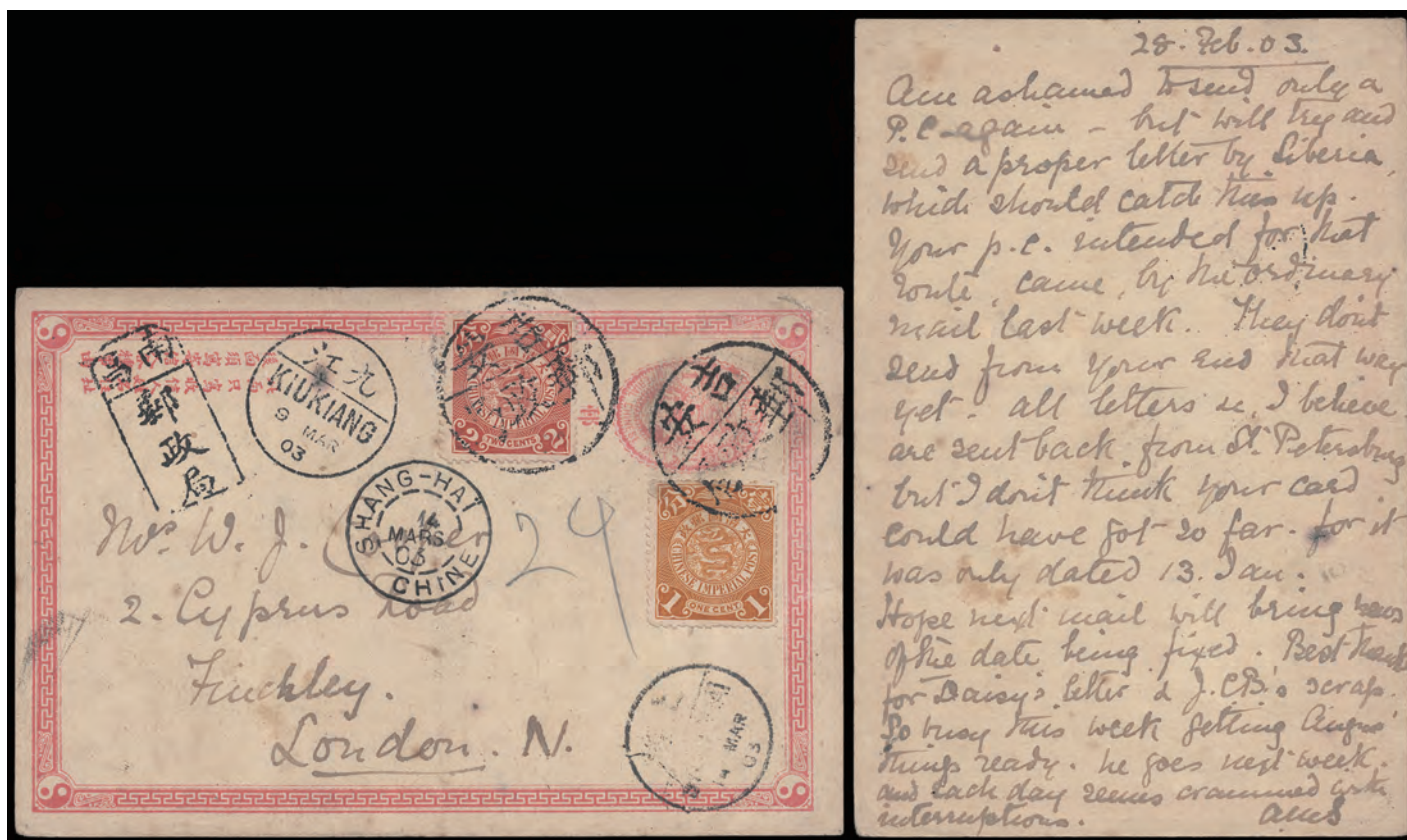 南昌
郵政局
九江
KIUKIANG
9 MAR
03
CHINESE IMPERIAL POST
2 TWO CENTS 2
吉安
SHANG-HAI
14
MARS
03
CHINE
24
CHINESE IMPERIAL POST
1 ONE CENT 1
W. J.
2. Cyprus Road
Finchley.
London. N.
MAR
03
28. Feb. 03.
Am ashamed to send only a
P.C. again - but will try and
send a proper letter by Siberia,
which should catch this up.
Your p.c. intended for that
route, came, by the ordinary
mail last week. They don't
send from your end that way
yet. all letters &c, I believe
are sent back from St. Petersburg
but I don't think your card
could have got so far. for it
was only dated 13. Jan.
Hope next mail will bring news
of the date being fixed. Best thanks
for Daisy's letter & J.C.B.'s scrap.
So busy this week getting Angus'
things ready. he goes next week.
and each day seems crammed with
interruptions.